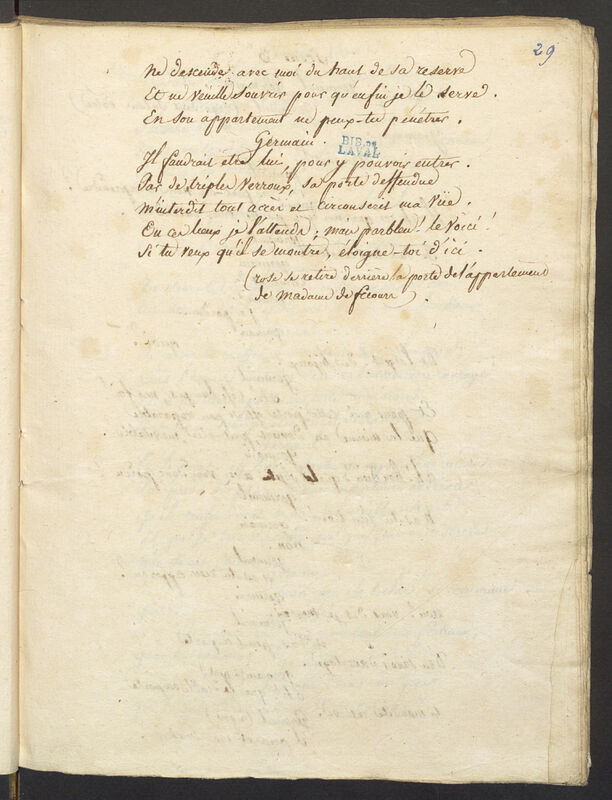 29
Ne descende avec moi du haut de sa reserve
Et ne veuille s'ouvrir pour qu'enfin je le serve.
En son appartement ne peux-tu pénétrer.
Germain.
BIB. DE
LAVAL
Il faudrait être lui, pour y pouvoir entrer.
Par de triples verroux, sa porte deffendue
M'interdit tout accès et circonscrit ma vüe.
En ces lieux je l'attends; mais parbleu! le voici!
Si tu veux qu'il se montre, éloigne-toi d'ici.
(rose se retire derrière la porte de l'appartement
de Madame de